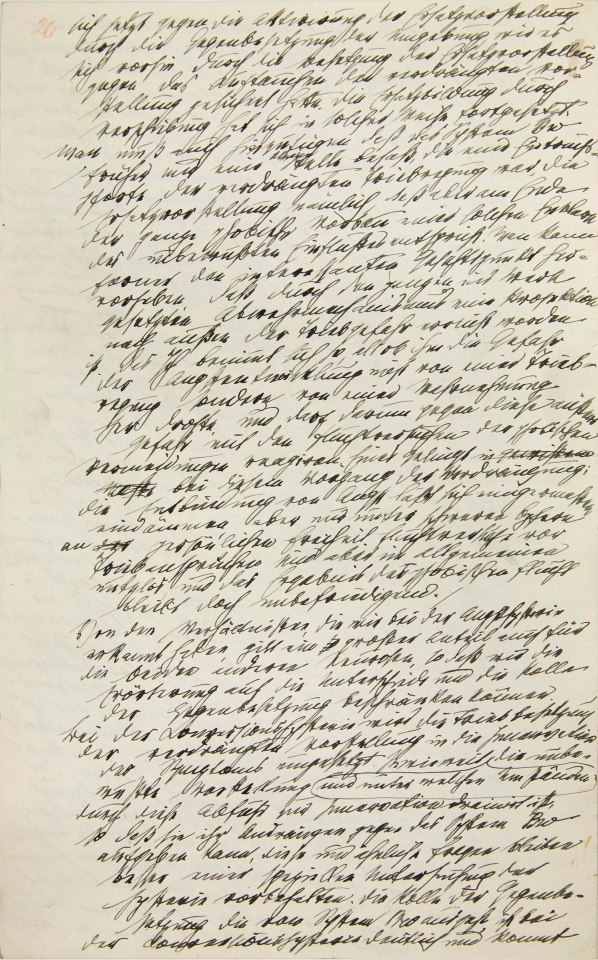 26
sich jetzt gegen die Aktivirung der Ersatzvorstellung
durch die Gegenbesetzung der Umgebung wie es
sich vorhin durch die Besetzung der Ersatzvorstellung
gegen das Auftauchen der verdrängten Vor-
stellung gesichert hatte. Die Ersatzbildung durch
Verschiebung hat sich in solcher Weise fortgesetzt.
Man muß auch hinzufügen daß das System Bw
früher nur eine kleine Stelle besaß, die eine Einbruchs-
pforte der verdrängten Triebregung war, die
Ersatzvorstellung nämlich, daß aber am Ende
der ganze phobische Vorbau einer solchen Enklave
des unbewußten Einflußes entspricht. Man kann
ferner den interessanten Gesichtspunkt her-
vorheben, daß durch den ganzen ins Werk
gesetzten Abwehrmechanismus eine Projektion
nach außen der Triebgefahr erreicht worden
ist. Das Ich benimmt sich so als ob ihm die Gefahr
der Angstentwicklung nicht von einer Trieb-
regung sondern von einer Wahrnehmung
her drohte und darf darum gegen diese äußere
Gefahr mit den Fluchtversuchen der phobischen
Vermeidungen reagiren. Eines gelingt
bei diesem Vorgang der Verdrängung;
die Entbindung von Angst läßt sich einigermaßen
eindämmen aber nur unter schweren Opfern
an persönlicher Freiheit. Fluchtversuche vor
Triebansprüchen sind aber im allgemeinen
nutzlos und das Ergebnis der phobischen Flucht
bleibt doch unbefriedigend.
Von den Verhältnissen die wir bei der Angsthysterie
erkannt haben gilt ein großer Anteil auch für
die beiden anderen Neurosen, so daß wir die
Erörterung auf die Unterschiede und die Rolle
der Gegenbesetzung beschränken können.
Bei der Conversionshysterie wird die Triebbesetzung
der verdrängten Vorstellung in die Innervation
des Symptoms umgesetzt. Inwieweit die unbe-
wußte Vorstellung (und unter welchen Umständen)
durch diese Abfuhr zur Innervation drainirt ist,
so daß sie ihr Andrängen gegen das System Bw
aufgeben kann, diese und ähnliche Fragen bleiben
besser einer speziellen Untersuchung der
Hysterie vorbehalten. Die Rolle der Gegenbe-
setzung die vom System Bw ausgeht ist bei
der Conversionshysterie deutlich und kommt